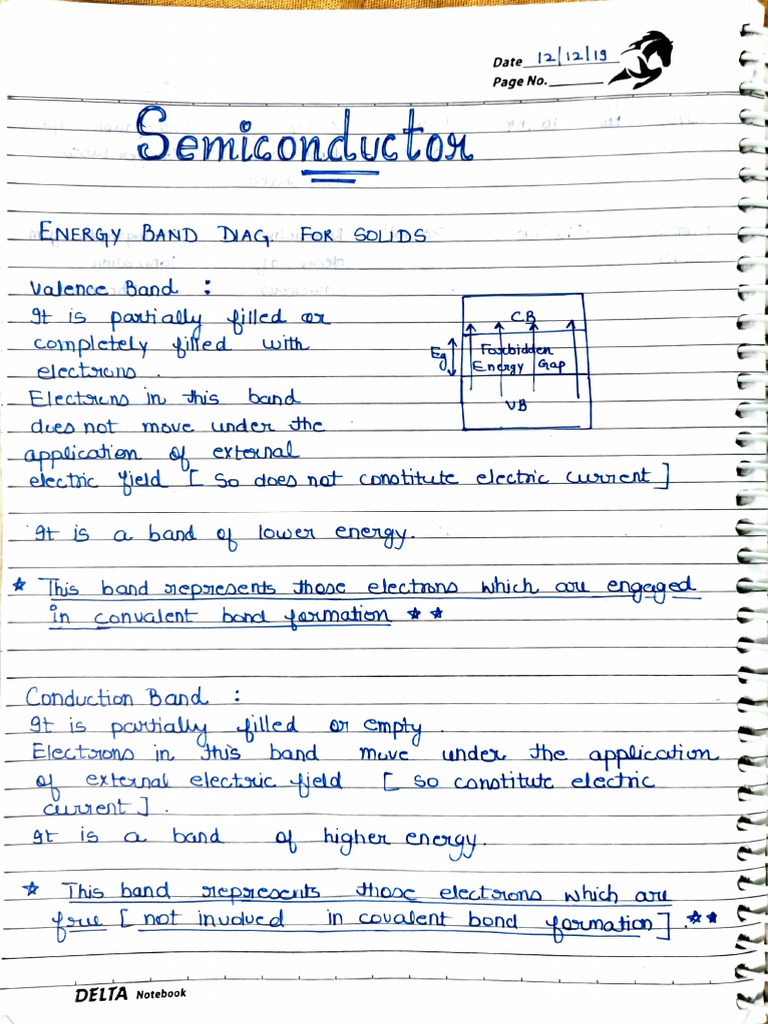 Date 12/12/19
Page No.
Semiconductor
ENERGY BAND DIAG. FOR SOLIDS
Valence Band :
It is partially filled or
completely filled with
electrons.
Electrons in this band
does not move under the
application of external
electric field [ So does not constitute electric current ]
CB
Eg
Forbidden
Energy Gap
VB
It is a band of lower energy.
* This band represents those electrons which are engaged
in convalent bond formation **
Conduction Band :
It is partially filled or empty.
Electrons in this band move under the application
of external electric field [ so constitute electric
current ].
It is a band of higher energy.
* This band represents those electrons which are
free [ not involved in covalent bond formation ]. **
DELTA Notebook